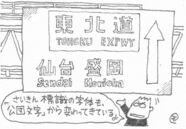 東北道
TOHOKU EXPWY
仙台 盛岡
Sendai Morioka
さいきん 標識の字体は、
公団文字から変わってきている